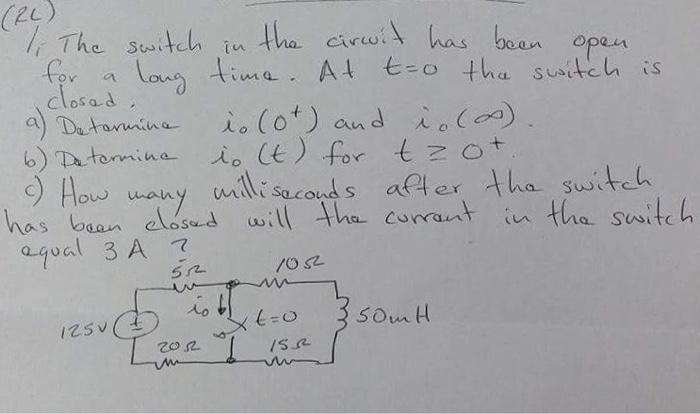 (RL)
1, The switch in the circuit has been open
for a long time. At t=0 the switch is
closed.
a) Determine i₀(0⁺) and i₀(∞).
b) Determine i₀(t) for t ≥ 0⁺.
c) How many milliseconds after the switch
has been closed will the current in the switch
equal 3 A ?
5Ω 10Ω
i₀ t=0 50mH
125V
20Ω 15Ω